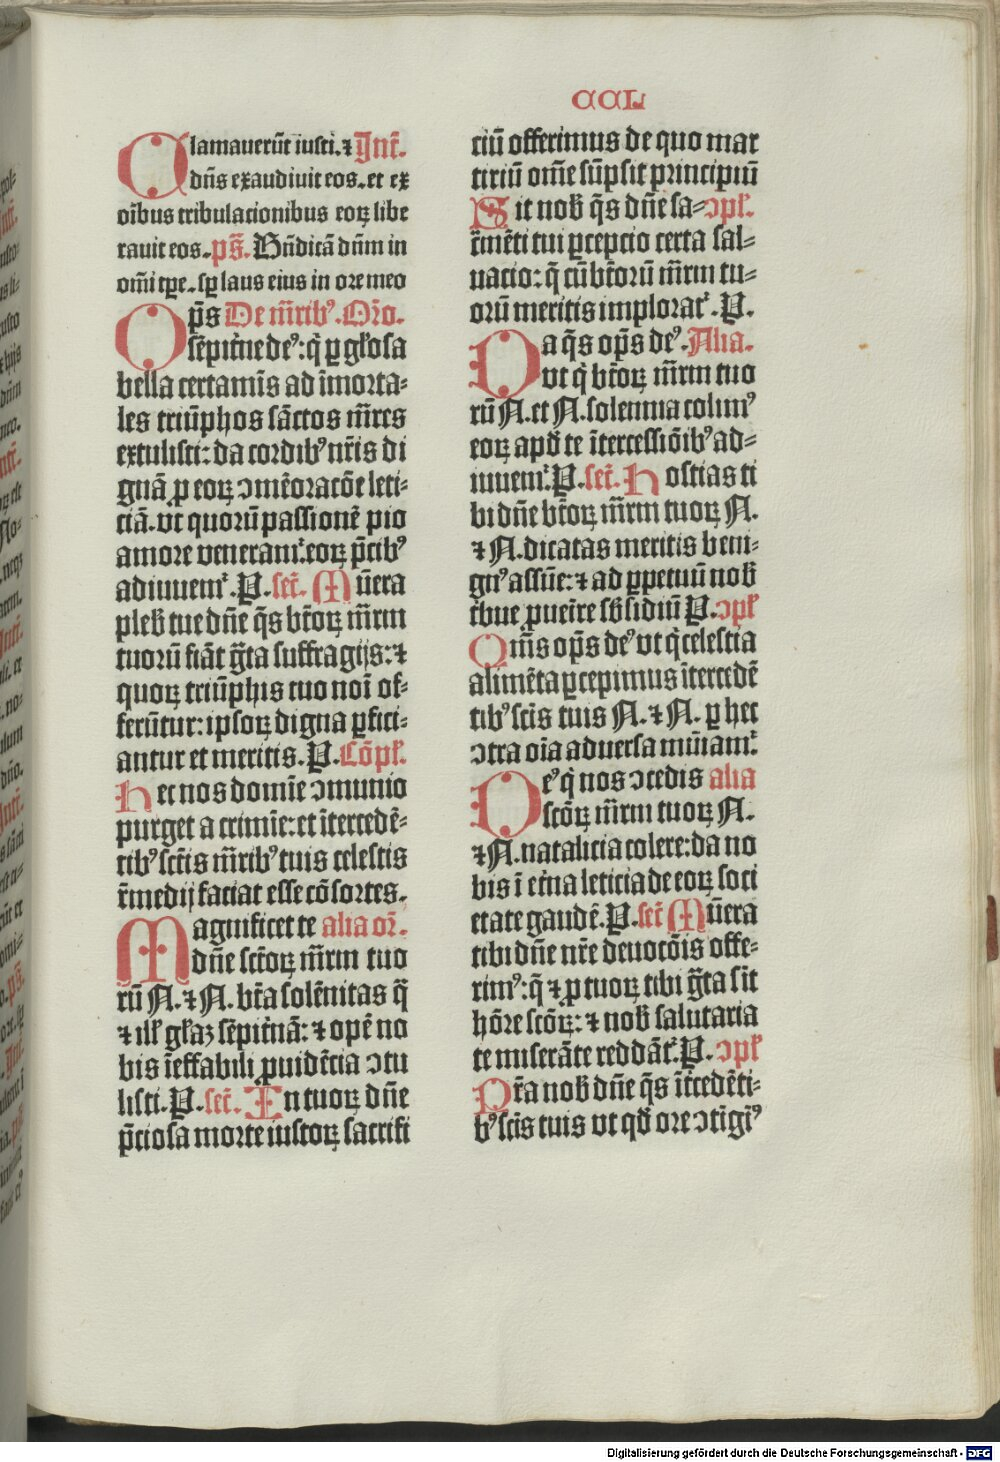 CCL
Clamauerūt iusti.⁊ Int̄.
dn̄s exaudiuit eos.et ex
oībus tribulacionibus eoꝝ libe
rauit eos.ps̄. Bn̄dicā dn̄m in
om̄i tꝑe.sꝑ laus eius in ore meo
Op̄s De m̄rib⁹.Or̄o.
sēpit̄ne de⁹:q̄ ꝑ gl̄osa
bella certamīs ad īmorta-
les triūphos sāctos m̄res
extulisti:da cordib⁹ nr̄is di
gnā ꝑ eoꝝ ꝯmēoracōe leti-
ciā.vt quorū passionē pio
amore veneram᷑.eoꝝ p̄cib⁹
adiuuem᷑.P.sec̄. Mūera
pleb̄ tue dn̄e q̄s bt̄oꝝ m̄rm
tuorū fiāt ḡta suffragijs:⁊
quoꝝ triūphis tuo noī of-
ferūtur:ipsoꝝ digna ꝑfici-
antur et meritis.P.Cōpl̄.
Hec nos domīe ꝯmunio
purget a crimīe:et ītercedē-
tib⁹ sct̄is m̄rib⁹ tuis celestis
r̄medij faciat esse cōsortes.
Magnificet te alia or̄.
dn̄e sct̄oꝝ m̄rm tuo
rū N.⁊ N. bt̄a solēnitas q̄
⁊ ill̄ gl̄aꝫ sēpit̄nā:⁊ opē no
bis īeffabili ꝓuidēcia ꝯtu
listi.P.sec̄. In tuoꝝ dn̄e
p̄ciosa morte iustoꝝ sacrifi
ciū offerimus de quo mar
tiriū om̄e sūpsit principiū
Sit nob̄ q̄s dn̄e sa-ꝯpl̄.
cr̄mēti tui ꝑcepcio certa sal-
uacio:q̄ cū bt̄orū m̄rm tu-
orū meritis implorat᷑.P.
Da q̄s op̄s de⁹.Alia.
vt q̄ bt̄oꝝ m̄rm tuo
rū N.et N.solennia colim⁹
eoꝝ apd̄ te ītercessiōib⁹ ad-
iuuem᷑.P.sec̄. Hostias ti
bi dn̄e bt̄oꝝ m̄rm tuoꝝ N.
⁊ N.dicatas meritis beni-
gn⁹ assūe:⁊ ad ꝑpetuū nob̄
t̄bue ꝓueīre sb̄sidiū P.ꝯpl̄
Om̄s op̄s de⁹ vt q̄ celestia
alimēta ꝑcepimus ītercedē
tib⁹ scīs tuis N.⁊ N. ꝑ hec
ꝯtra oīa aduersa muīam᷑.
De⁹ q̄ nos ꝯcedis alia
scōꝝ m̄rm tuoꝝ N.
⁊ N.natalicia colere:da no
bis ī et̄na leticia de eoꝝ soci
etate gaudē.P.sec̄ Mūera
tibi dn̄e nr̄e deuotōis offe-
rim⁹:q̄ ⁊ ꝓ tuoꝝ tibi ḡta sīt
hōre scōꝝ:⁊ nob̄ salutaria
te miserāte reddāt᷑.P. ꝯpl̄
Pr̄a nob̄ dn̄e q̄s īt̄cedēti-
b⁹ scīs tuis vt qd̄ ore ꝯtīgī⁹